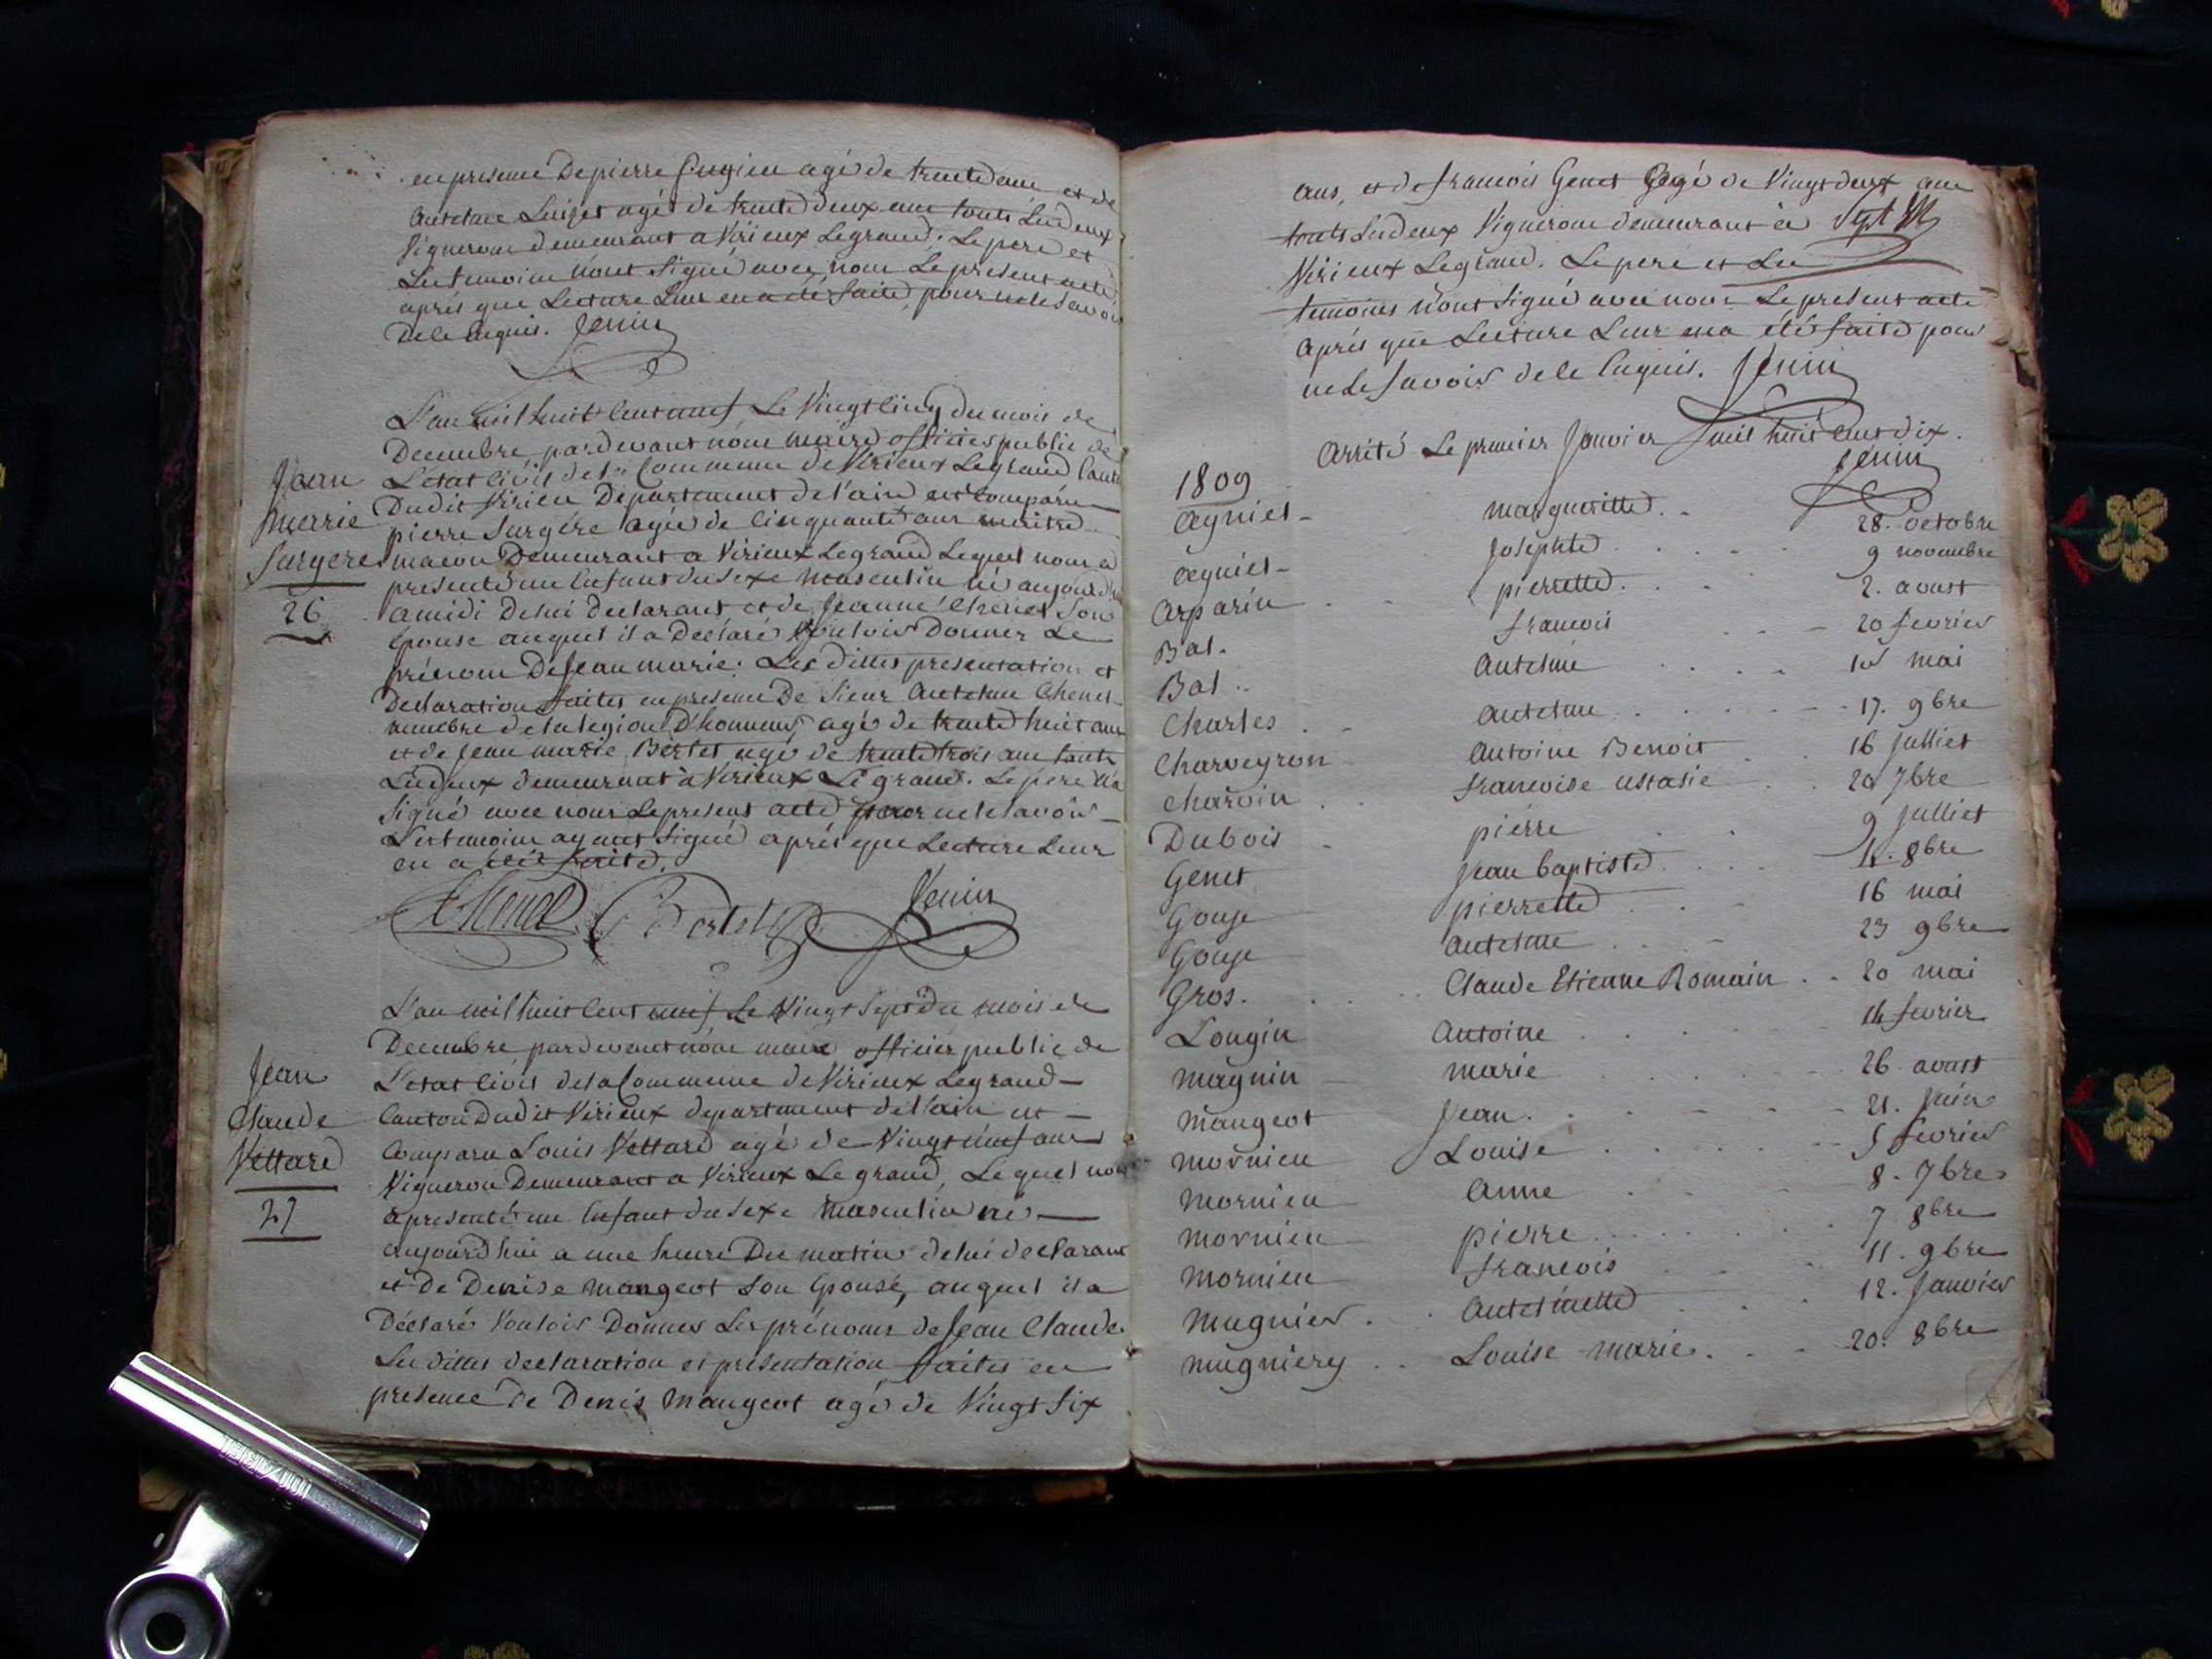 en presence De pierre Cugieu agé de trente ans et de
antelme Luiset agé de trente deux ans touts Les deux
Vignerons demeurants a Virieux Legrand. Le pere et
Les temoins n'ont Signé avec nous Le present acte
aprés que Lecture Leur en a été faite, pour ne le savoir
De le Requis. Jenin
L'an mil huit Cent neuf Le Vingt Cinq du mois de
Decembre, pardevant nous maire officier public de
L'etat Civil de la Commune de Virieux Legrand Canton
Dudit Virieu Departement de l'ain est Comparu
Jean
marie
Surgere
26
pierre Surgére agée de Cinquante ans maitre
macon Demeurant a Virieux Legrand Lequel nous a
presenté un Enfant du Sexe masculin né aujourd'hui
a midi De lui declarant et de Jeanne Chenet Son
Epouse auquel il a Declaré Vouloir Donner Le
prénom De Jean marie. Les dittes presentation et
Declaration faites en presence De Sieur antelme Chenet
membre de la legion D'honneur, agé de trente huit ans
et de Jean marie Bertet agé de trente trois ans touts
Les deux demeurant a Virieux Le grand. Le pere n'a
Signé avec nous Le present acte pour ne le savoir
Les temoins ayant Signé aprés que Lecture Leur
en a été faite.
Chenet Bertet Jenin
L'an mil huit Cent neuf Le Vingt Sept du mois de
Decembre pardevant nous maire officier public de
L'etat Civil de la Commune de Virieux Legrand
Canton Dudit Virieux departement de l'ain est
Jean
Claude
Vettard
27
Comparu Louis Vettard agé de Vingt neuf ans
Vigneron Demeurant a Virieux Le grand, Lequel nous
a presenté un Enfant du Sexe masculin né
aujourd'hui a une heure Du matin de lui declarant
et De Denise mangeot Son Epouse, auquel il a
Déclaré Vouloir Donner Les prénoms de Jean Claude
Les dittes declaration et présentation faites en
presence De Denis mangeot agé de Vingt Six
ans, et de francois Genet agé de Vingt deux ans
touts Les deux Vignerons demeurant a
Virieux Legrand. Le peré et Les
temoins n'ont Signé avec nous Le present acte
Aprés que Lecture Leur en a été faite pour
ne Le savoir de le Requis. Jenin
Arrété Le premier Janvier mil huit Cent dix.
Jenin
1809
Agniet margueritte 28. octobre
Agniet Josephte 9 novembre
Arparin pierrette 2. aoust
Bal. francois 20 fevrier
Bal antelme mai
Charles antelme 17. 9bre
Charveyron Antoine Benoit 16 Julliet
Charvin francoise ustasie 7bre
Dubois pierre 9 Julliet
Genet Jean baptiste 8bre
Gouje pierrette 16 mai
Gouje antelme 23 9bre
Gros. Claude Etienne Romain 20 mai
Longin Antoine 14 fevrier
magnin marie 26. aoust
mangeot Jean 21. Juin
mornieu Louise 5 fevrier
mornieu Anne 8. 7bre
mornieu pierre 7 8bre
mornieu francois 11. 9bre
mugnier Antelmette 12. Janvier
mugniery Louise marie 20. 8bre